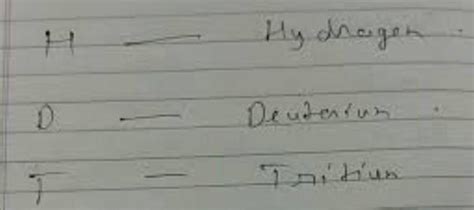 H — Hydrogen.
D — Deuterium.
T — Tritium